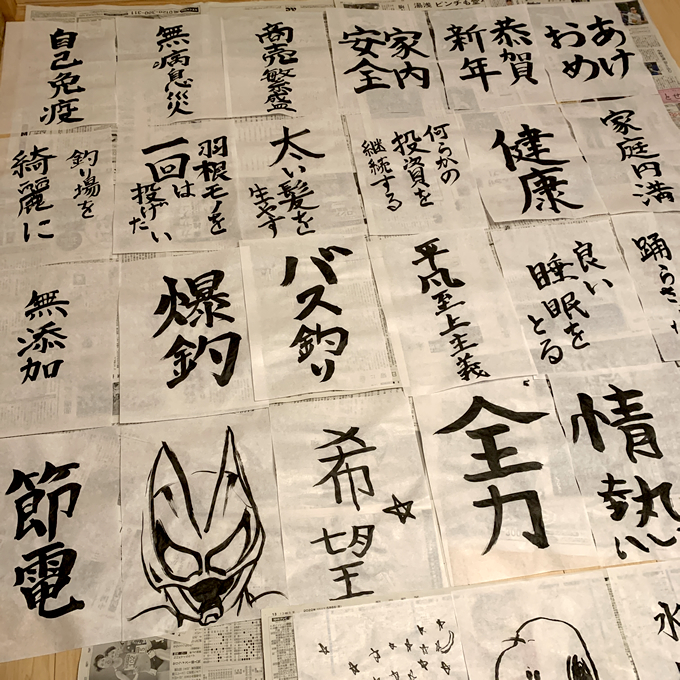 あけ
おめ
恭賀
新年
家内
安全
商売繁盛
無病息災
自己免疫
家庭円満
健康
何らかの
投資を
継続する
太い髪を
生やす
羽根モノを
一回は
投げたい
釣り場を
綺麗に
踊らさ
良い
睡眠を
とる
平凡至上主義
バス釣り
爆釣
無添加
情熱
全力
希望
節電
水